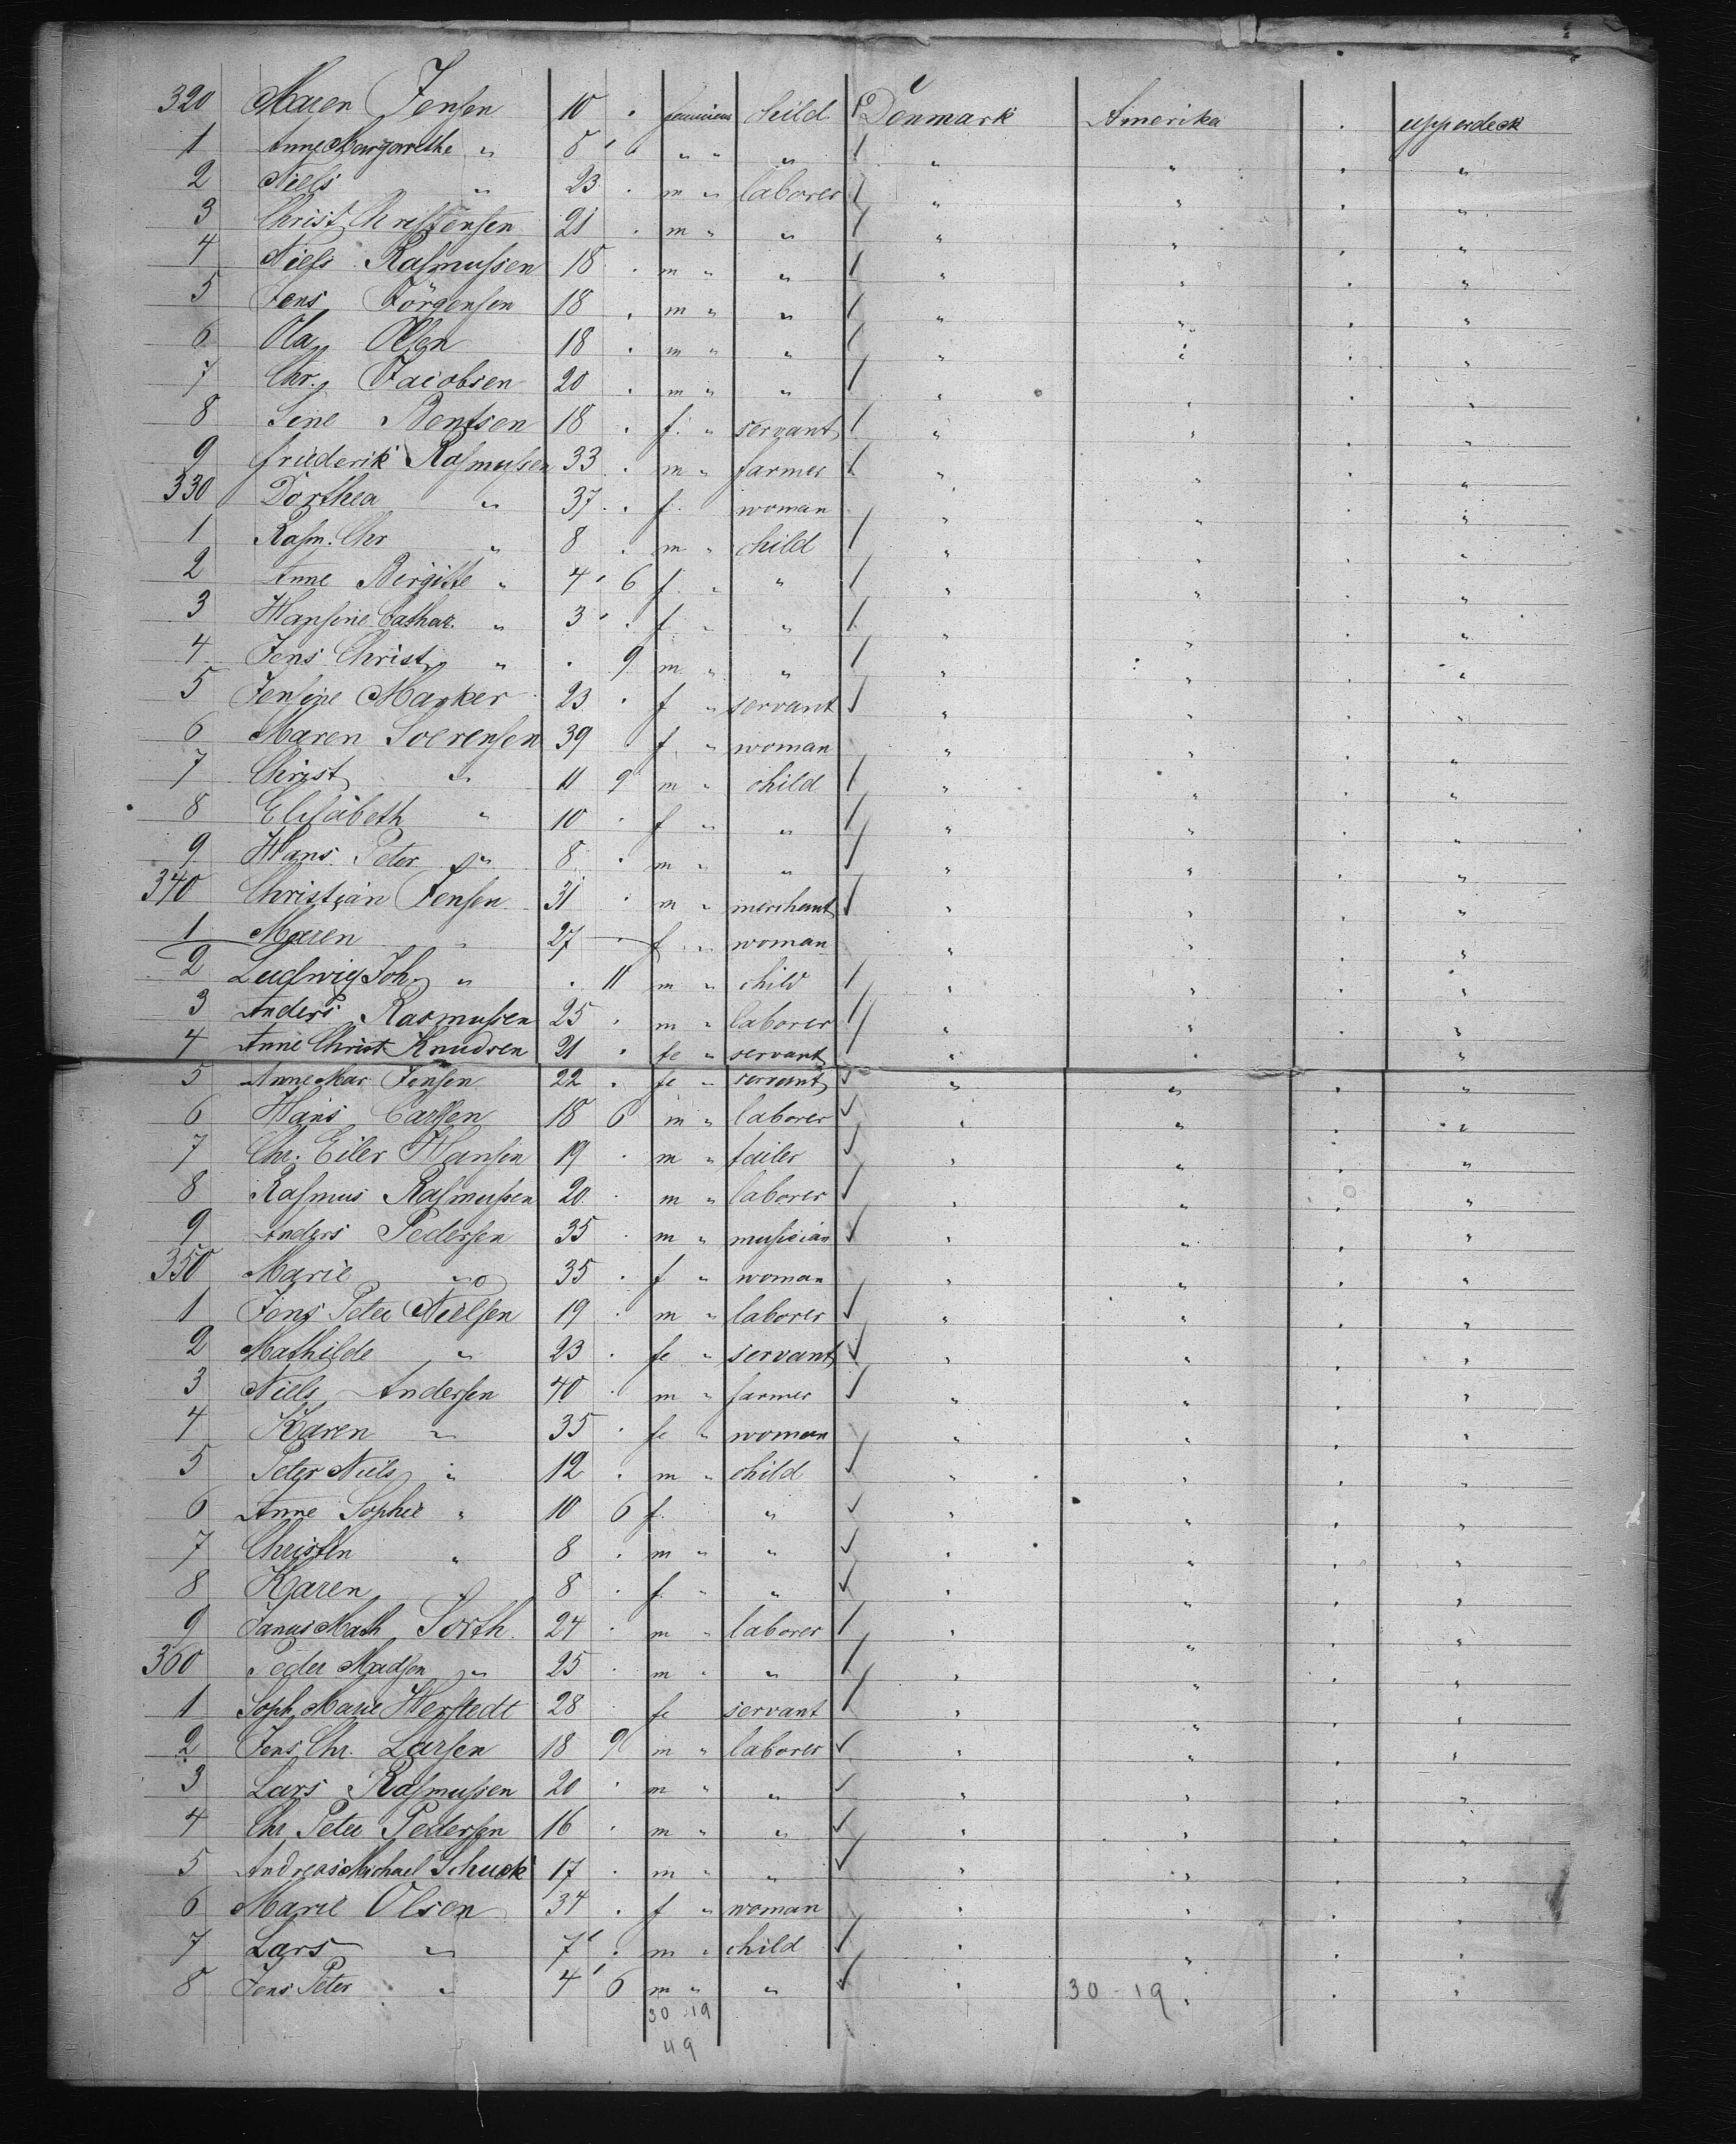 320 Maren Jensen 10 . feminien child Denmark Amerika . upperdeck
1 Anne Margarethe " 8 . " " " " " . "
2 Niels " 23 . m " laborer " " . "
3 Christ. Chrestensen 21 . m " " " " . "
4 Niels Rasmussen 18 . m " " " " . "
5 Jens Jörgensen 18 . m " " " " . "
6 Ola Olsen 18 . m " " " " . "
7 Chr. Jacobsen 20 . m " " " " . "
8 Sine Bentsen 18 . f. " servant " " . "
9 friederik Rasmussen 33 . m " farmer " " . "
330 Dorthea " 37 . f. woman " " . "
1 Rasm. Chr " 8 . m " child " " . "
2 Anne Birgitte " 4 6 f. " " " " . "
3 Hansine Cathar. " 3 . f. " " " " . "
4 Jens Christ. " . 9 m " " " " . "
5 Jensine Marker 23 . f " servant " " . "
6 Maren Soerensen 39 f. " woman " " . "
7 Christ. " 11 9 m " child " " . "
8 Elisabeth " 10 . f " " " " . "
9 Hans Peter " 8 . m " " " " . "
340 Christian Jensen 31 . m " merchant " " . "
1 Maren " 27 . f " woman " " . "
2 Ludwig Joh. " . 11 m " child " " . "
3 Anders Rasmussen 25 . m " laborer " " . "
4 Anne Christ Knudsen 21 . fe " servant " " . "
5 Anne Mar. Jensen 22 . fe " servant " " . "
6 Hans Carlsen 18 6 m " laborer " " . "
7 Chr. Eiler Hansen 19 . m " tailer " " . "
8 Rasmus Rasmussen 20 . m " laborer " " . "
9 Anders Pedersen 35 . m " musician " " . "
350 Marie " 35 . f " woman " " . "
1 Jens Peter Nielsen 19 . m " laborer " " . "
2 Mathilde " 23 . fe " servant " " . "
3 Niels Andersen 40 . m " farmer " " . "
4 Karen " 35 . fe " woman " " . "
5 Peter Niels " 12 . m " child " " . "
6 Anne Sophie " 10 6 f. " " " . "
7 Christen " 8 . m " " " " . "
8 Karen " 8 . f. " " " " . "
9 Janus Math. Sorth. 24 . m " laborer " " . "
360 Peder Madsen " 25 . m " " " " . "
1 Soph. Marie Herstedt 28 fe servant " " . "
2 Jens Chr. Larsen 18 9 m " laborer " " . "
3 Lars Rasmussen 20 . m " " " " . "
4 Chr. Peter Pedersen 16 . m " " " " . "
5 Andreas Michael Schuck 17 . m " " " " . "
6 Marie Olsen 34 . f " woman " " . "
7 Lars " 7 . m " child " " . "
8 Jens Peter " 4 6 m " " " 30-19 " . "
30-19
49